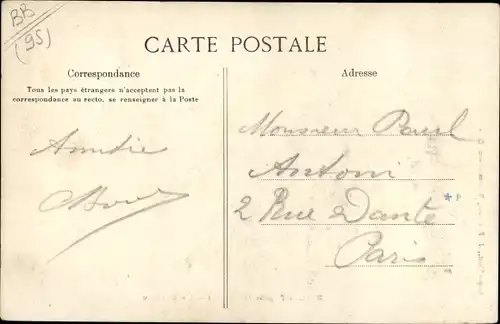 BB
(95)
CARTE POSTALE
Correspondance
Tous les pays étrangers n'acceptent pas la
correspondance au recto, se renseigner à la Poste
Adresse
Amitié
Monsieur Paul
Antoni
2 Rue Dante
Paris